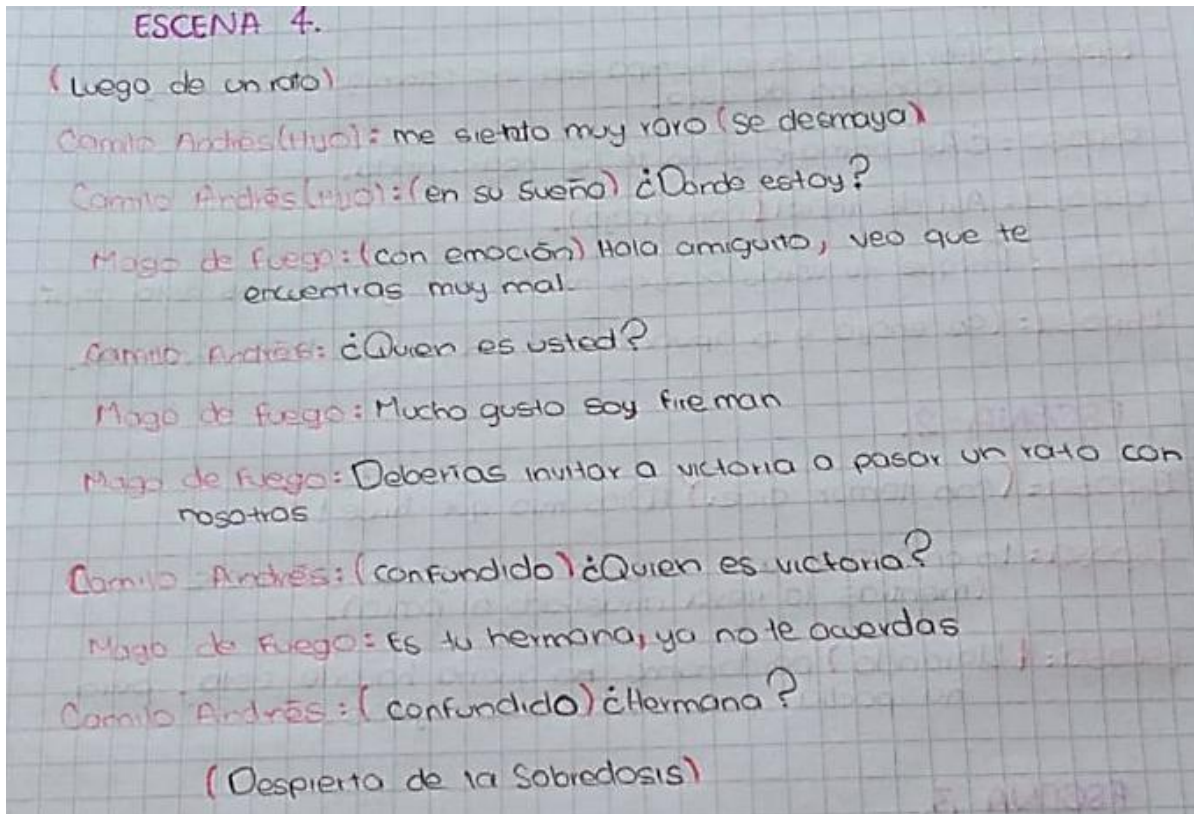 ESCENA 4.
(Luego de un rato)
Camilo Andrés (Hijo): me siento muy raro (se desmaya)
Camilo Andrés (Hijo): (en su sueño) ¿Donde estoy?
Mago de fuego: (con emoción) Hola amiguito, veo que te
encuentras muy mal.
Camilo Andrés: ¿Quien es usted?
Mago de fuego: Mucho gusto soy fire man
Mago de fuego: Deberias invitar a victoria a pasar un rato con
nosotros
Camilo Andrés: (confundido) ¿Quien es victoria?
Mago de Fuego: Es tu hermana, ya no te acuerdas
Camilo Andrés: (confundido) ¿Hermana?
(Despierta de la Sobredosis)